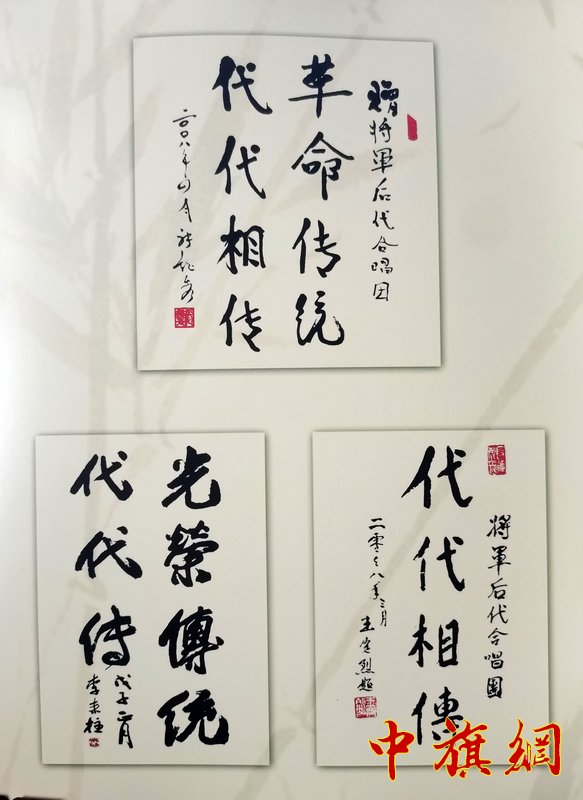 赠将軍后代合唱团
革命传统
代代相传
二〇〇八年
光榮傳统
代代傳
戊子二月
李来柱
将軍后代合唱團
代代相傳
二零零八年三月
王定烈题
中旗網